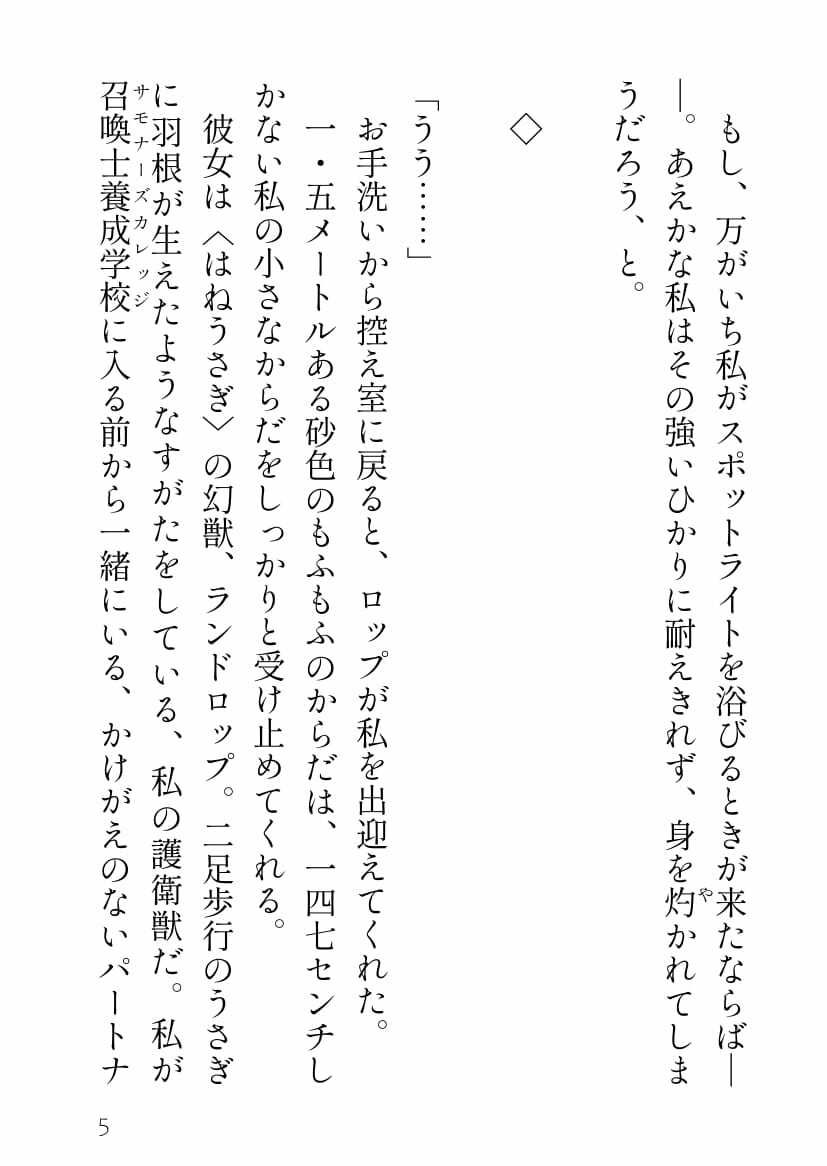 もし、万がいち私がスポットライトを浴びるときが来たならば―
―。あえかな私はその強いひかりに耐えきれず、身を灼かれてしま
や
うだろう、と。
◇
「うう……」
お手洗いから控え室に戻ると、ロップが私を出迎えてくれた。
一・五メートルある砂色のもふもふのからだは、一四七センチし
かない私の小さなからだをしっかりと受け止めてくれる。
彼女は〈はねうさぎ〉の幻獣、ランドロップ。二足歩行のうさぎ
に羽根が生えたようなすがたをしている、私の護衛獣だ。私が
サモナーズカレッジ
召喚士養成学校に入る前から一緒にいる、かけがえのないパートナ
5